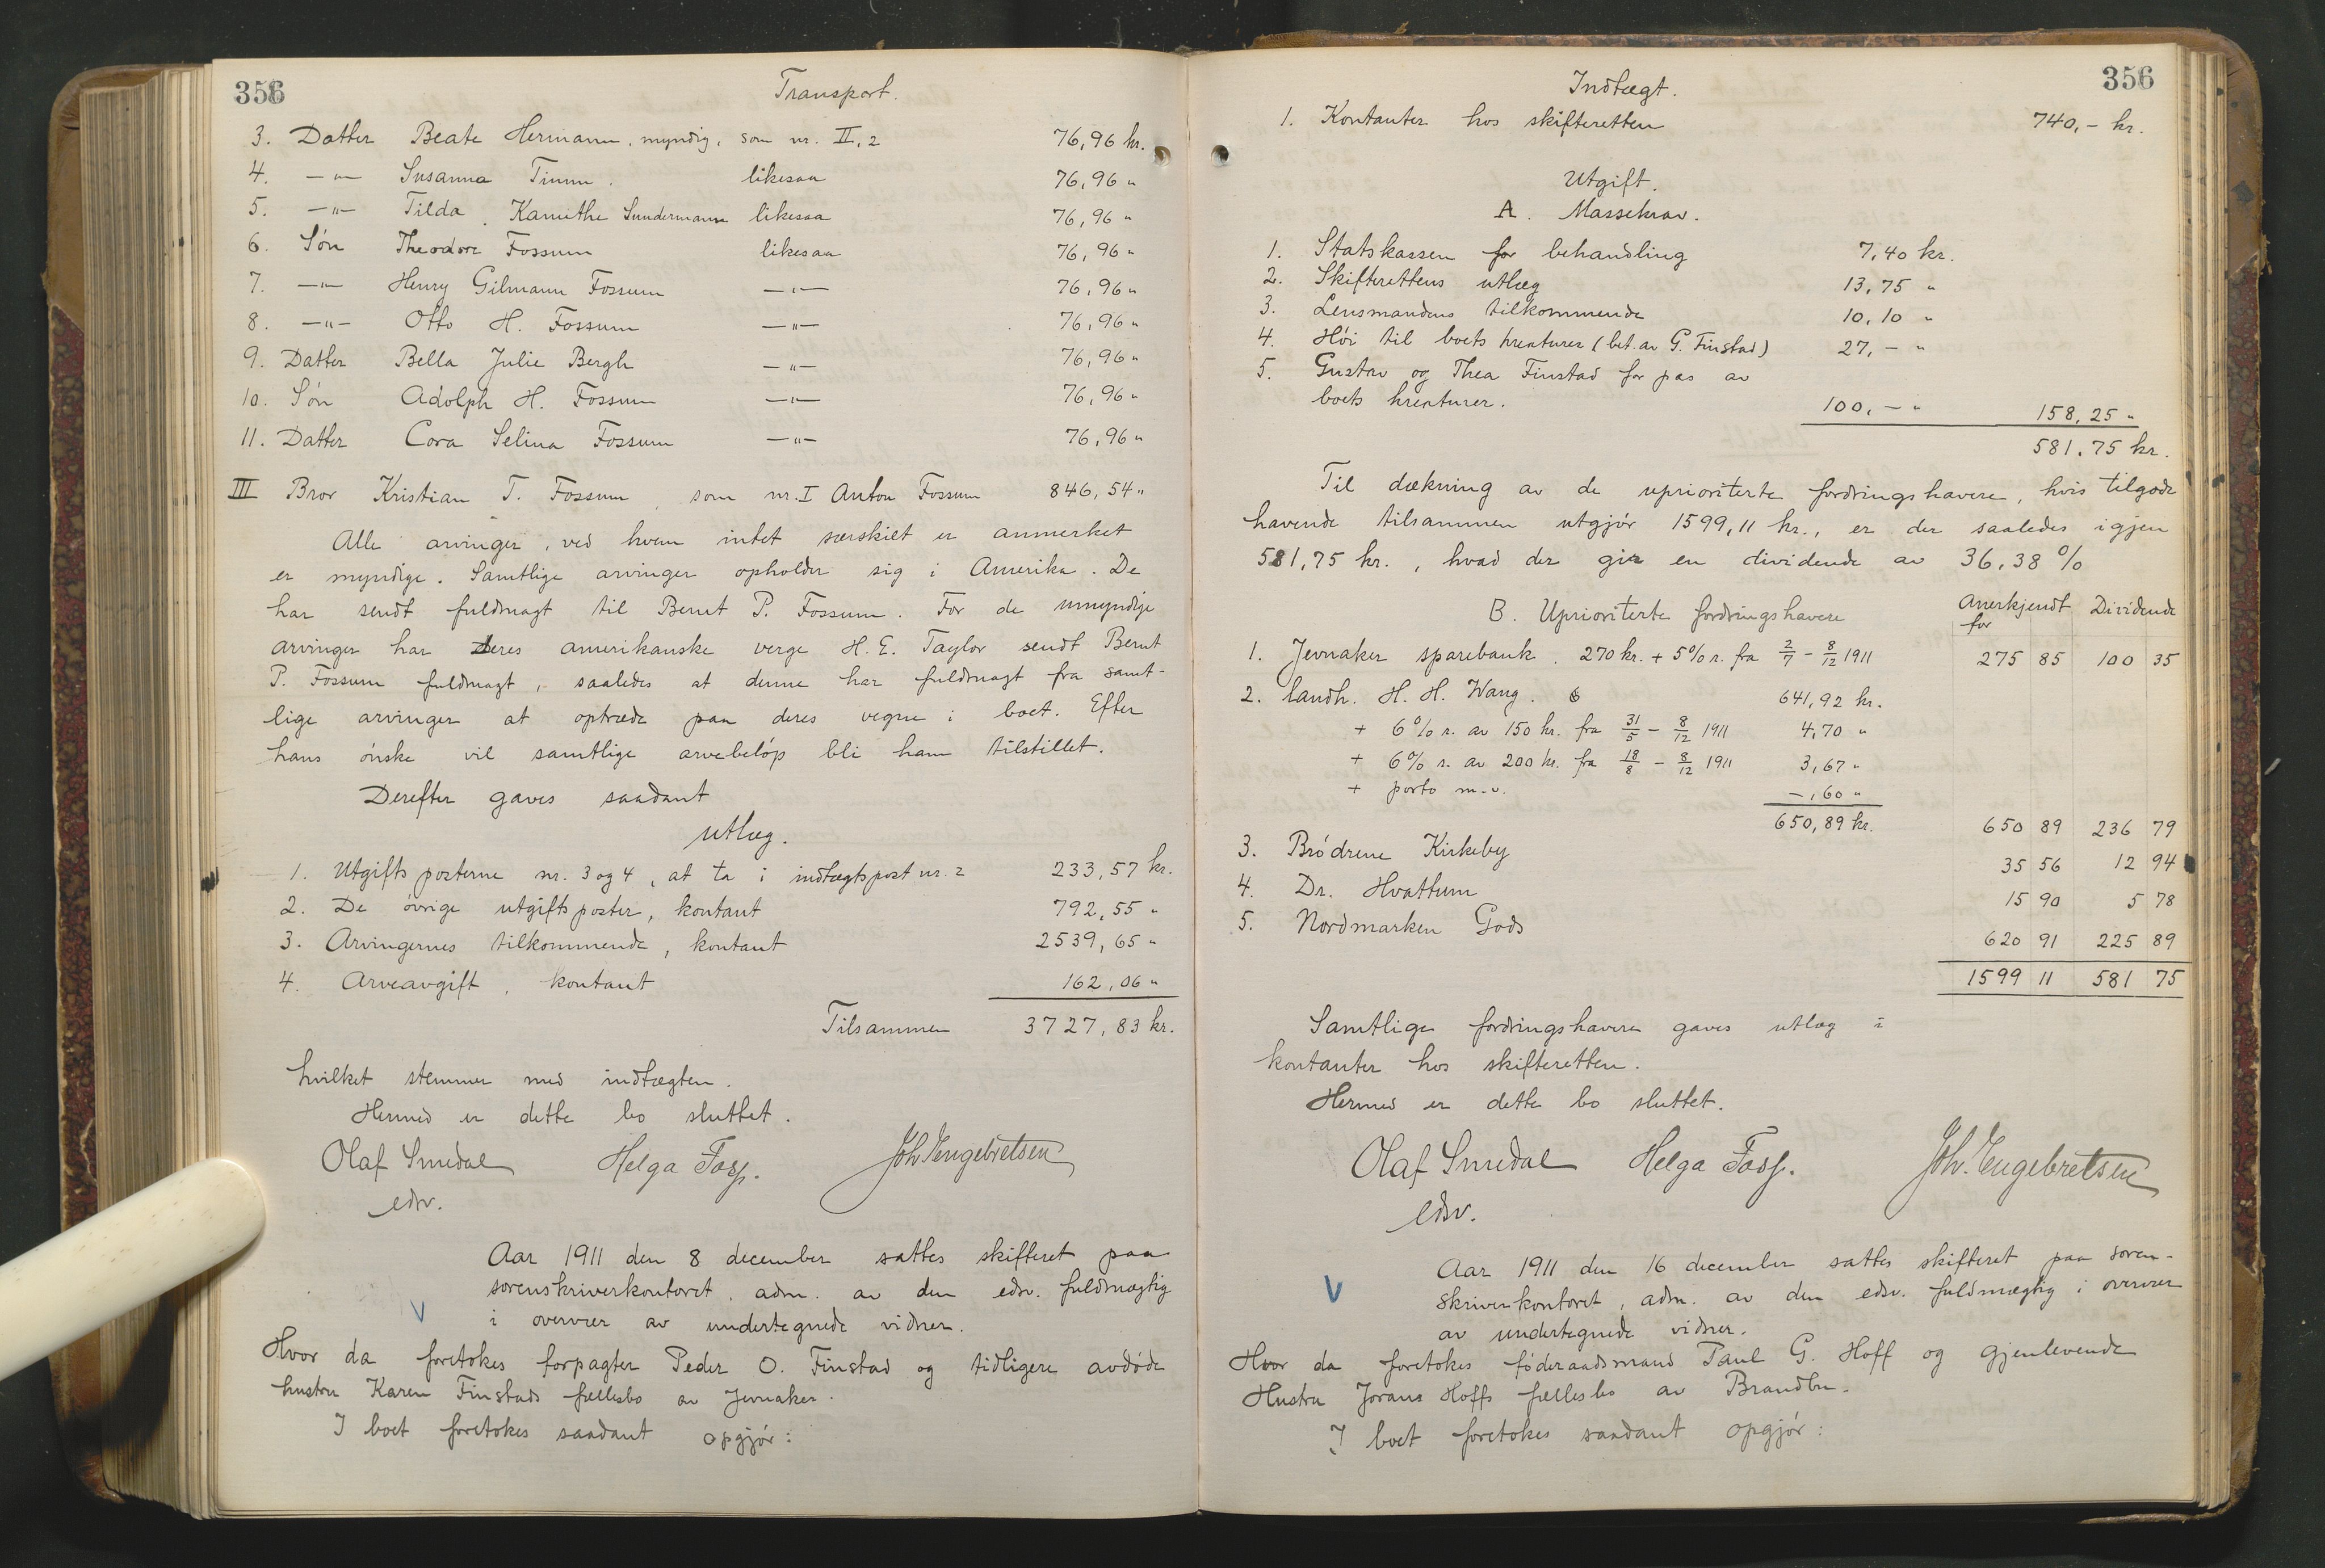 356
Transport.
3. Datter Beate Hermann, myndig, som nr. II, 2 76,96 kr.
4. —"— Susanna Timm. likesaa 76,96 "
5. —"— Tilda Kamithe Sundermann likesaa 76,96 "
6. Søn Theodore Fossum likesaa 76,96 "
7. —"— Henry Gilmann Fossum —"— 76,96 "
8. —"— Otto H. Fossum —"— 76,96 "
9. Datter Bella Julie Bergh —"— 76,96 "
10. Søn Adolph H. Fossum —"— 76,96 "
11. Datter Cora Selina Fossum —"— 76,96 "
III Bror Kristian T. Fossum som nr. I Anton Fossum 846,54 "
Alle arvinger, ved hvem intet særskilt er anmerket
er myndige. Samtlige arvinger opholder sig i Amerika. De
har sendt fuldmagt til Bernt P. Fossum. For de umyndige
arvinger har deres amerikanske verge H. E. Taylor sendt Bernt
P. Fossum fuldmagt, saaledes at denne har fuldmagt fra samt-
lige arvinger at optræde paa deres vegne i boet. Efter
hans ønske vil samtlige arvebeløp bli ham tilstillet.
Derefter gaves saadant
utlæg.
1. Utgiftsposterne nr. 3 og 4, at ta i indtægtspost nr. 2 233,57 kr.
2. De øvrige utgiftsposter, kontant 792,55 "
3. Arvingernes tilkommende, kontant 2539,65 "
4. Arveavgift, kontant 162,06 "
Tilsammen 3727,83 kr.
hvilket stemmer med indtægten.
Hermed er dette bo sluttet.
Olaf Smedal Helga Fossf. Joh. Engebretsen
edsv.
Aar 1911 den 8 december sattes skifteret paa
sorenskriverkontoret, adm. av den edsv. fuldmægtig
V
i overvær av undertegnede vidner.
Hvor da foretokes forpagter Peder O. Finstad og tidligere avdøde
hustru Karen Finstads fællesbo av Jevnaker.
I boet foretokes saadant opgjør:
356
Indtægt.
1. Kontanter hos skifteretten 740,- kr.
Utgift.
A. Massekrav.
1. Statskassen for behandling 7,40 kr.
2. Skifterettens utlæg 13,75 "
3. Lensmandens tilkommende 10,10 "
4. Høi til boets kreaturer (bet. av G. Finstad) 27,- "
5. Gustav og Thea Finstad for pas av
boets kreaturer. 100,- " 158,25 "
581,75 kr.
Til dækning av de uprioriterte fordringshavere, hvis tilgode
havende tilsammen utgjør 1599,11 kr., er der saaledes igjen
581,75 kr., hvad der gir en dividende av 36,38 %
B. Uprioriterte fordringshavere Anerkjendt for Dividende
1. Jevnaker sparebank. 270 kr. + 5% r. fra 2/7 - 8/12 1911 275 85 100 35
2. Landh. H. H. Wang. 641,92 kr.
+ 6% r. av 150 kr. fra 31/5 - 8/12 1911 4,70 "
+ 6% r. av 200 kr. fra 18/8 - 8/12 1911 3,67 "
+ porto m.v. -,60 "
650,89 kr. 650 89 236 79
3. Brødrene Kirkeby 35 56 12 94
4. Dr. Hvattum 15 90 5 78
5. Nordmarken Gods 620 91 225 89
1599 11 581 75
Samtlige fordringshavere gaves utlæg i
kontanter hos skifteretten.
Hermed er dette bo sluttet.
Olaf Smedal Helga Fossf. Joh. Engebretsen
edsv.
Aar 1911 den 16 december sattes skifteret paa soren-
V
skriverkontoret, adm. av den edsv. fuldmægtig i overvær
av undertegnede vidner.
Hvor da foretokes føderaadsmand Paul G. Hoff og gjenlevende
Hustru Jorans Hoffs fællesbo av Brandbu.
I boet foretokes saadant opgjør: